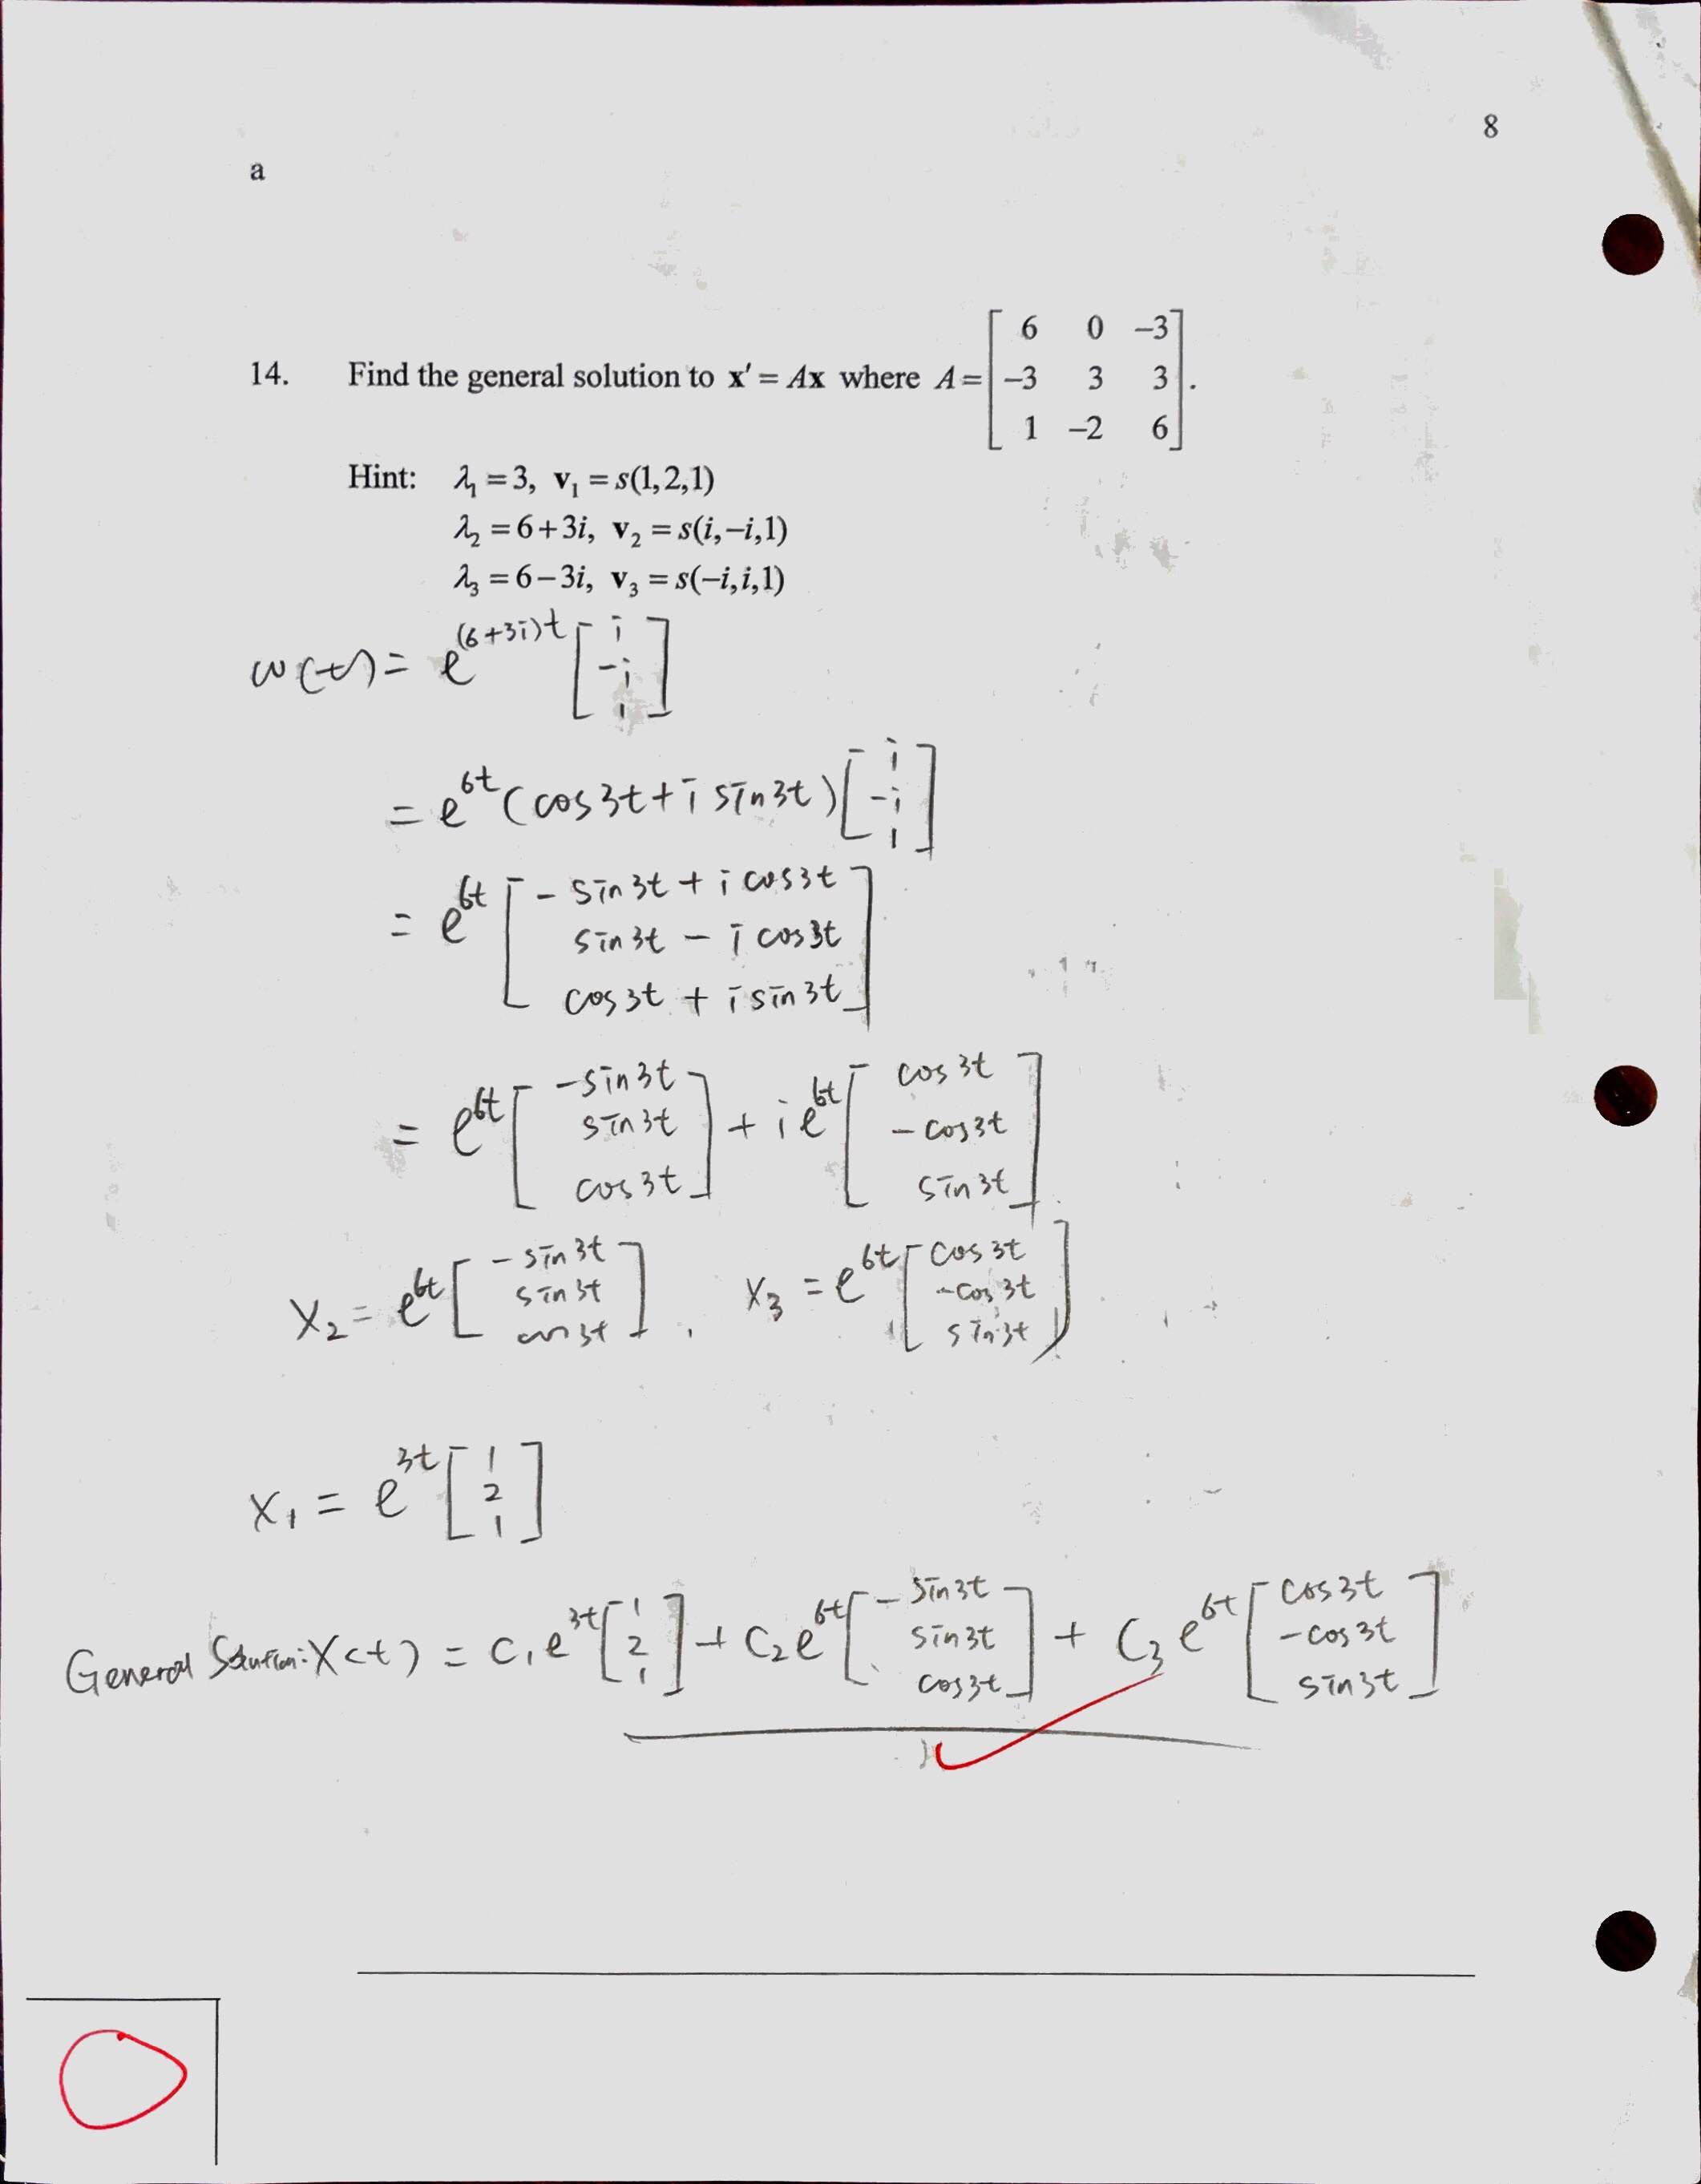 8
a
14. Find the general solution to x′ = Ax where A = [6 0 −3; −3 3 3; 1 −2 6].
Hint: λ₁ = 3, v₁ = s(1,2,1)
λ₂ = 6+3i, v₂ = s(i,−i,1)
λ₃ = 6−3i, v₃ = s(−i,i,1)
w(t) = e^(6+3i)t [i; -i; 1]
= e^6t (cos3t + i sin3t) [i; -i; 1]
= e^6t [- sin3t + i cos3t; sin3t - i cos3t; cos3t + i sin3t]
= e^6t [-sin3t; sin3t; cos3t] + i e^6t [cos3t; -cos3t; sin3t]
X₂ = e^6t [-sin3t; sin3t; cos3t], X₃ = e^6t [cos3t; -cos3t; sin3t]
X₁ = e^3t [1; 2; 1]
General Solution: X(t) = C₁e^3t [1; 2; 1] + C₂e^6t [-sin3t; sin3t; cos3t] + C₃e^6t [cos3t; -cos3t; sin3t]